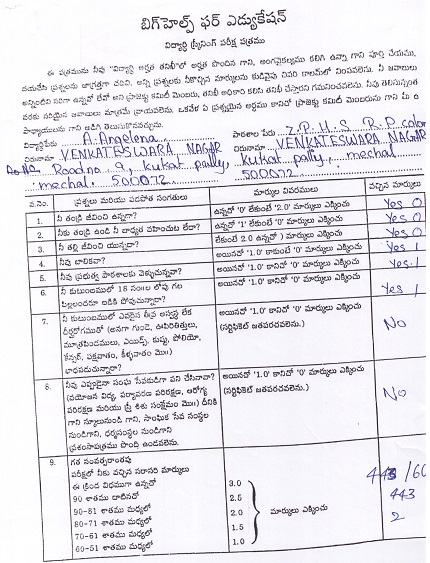 బిగ్‌హెల్ప్ ఫర్ ఎడ్యుకేషన్
విద్యార్థి స్క్రీనింగ్ పరీక్ష పత్రము
ఈ పత్రమును నీవు "విద్యార్థి అర్హత తనిఖీ"లో అర్హత పొందిన గాని, అంగవైకల్యము కలిగి ఉన్నా గాని పూర్తి చేయుము,
దయచేసి ప్రశ్నలను జాగ్రత్తగా చదివి, అన్ని ప్రశ్నలకు నీకొచ్చిన మార్కులను కుడివైపు చివరి కాలమ్‌లో నింపవలెను. నీ జవాబులు
అన్నింటిని సరిగా ఉన్నవో లేవో అని ప్రాజెక్టు కమిటీ మెంబరు, తనిఖీ అధికారి కలిసి తనిఖీ చేస్తారని గమనించవలెను. నీవు తెలిసున్నంత
వరకు సరియైన జవాబులు మాత్రమే వ్రాయవలెను. ఒకవేళ ఏ ప్రశ్నయైన అర్థము కానిచో ప్రాజెక్టు కమిటీ మెంబరును గాని మీ
పాధ్యాయులను గాని అడిగి తెలుసుకొనవచ్చును.
విద్యార్థిపేరు A. Angelena పాఠశాల పేరు Z.P.H.S R.P. colon
చిరునామా VENKATESWARA NAGAR చిరునామా VENKATESWARA NAGAR
Road no. 9, kukat pally, kukat pally, mechal
mechal. 500072 500072
వ.నెం. ప్రశ్నలు మరియు పడపోత సంగతులు మార్కుల వివరములు వచ్చిన మార్కులు
1. నీ తండ్రి జీవించి ఉన్నారా? ఉన్నచో '0' లేకుంటే '2.0' మార్కులు ఎక్కించు Yes 0
2. నీకు తండ్రి ఉండి నీ బాధ్యత వహించుట లేదా? ఉన్నచో '1' లేకుంటే '0' మార్కులు ఎక్కించు Yes 0
3. నీ తల్లి జీవించి యున్నదా? లేకుంటే 2.0 ఉన్నచో ) మార్కులు ఎక్కించు Yes 0
4. నీవు బాలికవా? అయినచో '1.0' కాకుంటే '0' మార్కులు ఎక్కించు Yes 1
5. నీవు ప్రభుత్వ పాఠశాలకు వెళ్ళుచున్నావా? అయినచో '1.0' కానిచో '0' మార్కులు ఎక్కించు Yes.1
6. నీ కుటుంబములో 18 సం॥ల లోపు గల
పిల్లలందరూ బడికి పోవుచున్నారా? అయినచో '1.0' కానిచో '0' మార్కులు ఎక్కించు Yes 1
7. నీ కుటుంబములో ఎవరైన తీవ్ర అస్వస్థ లేక
దీర్ఘరోగముతో (అనగా గుండె, ఊపిరితిత్తులు,
మూత్రపిండములు, ఎయిడ్స్, కుష్టు, పోలియో,
కేన్సర్, పక్షవాతం, కీళ్ళవాతం మొ॥)
బాధపడుచున్నారా? అయినచో '1.0' కానిచో '0' మార్కులు ఎక్కించు
(సర్టిఫికెట్ జతపరచవలెను.) No
8. నీవు ఎప్పుడైనా సంఘ సేవకుడిగా పని చేసినావా?
(వయోజన విద్య, పర్యావరణ పరిరక్షణ, ఆరోగ్య
పరిరక్షణ మరియు స్త్రీ శిశు సంక్షేమం మొ॥) దీనికి
గాని స్కూలునుండి గాని, సాంఘిక సేవ సంస్థల
నుండిగాని, ధర్మసంస్థల నుండిగాని
ప్రశంసాపత్రము పొంది ఉండవలెను. అయినచో '1.0' కానిచో '0' మార్కులు ఎక్కించు
(సర్టిఫికెట్ జతపరచవలెను.) No
9. గత సంవత్సరాంతపు
పరీక్షలో నీకు వచ్చిన సరాసరి మార్కులు
ఈ క్రింద విధముగా ఉన్నచో
90 శాతము దాటినచో 3.0
90-81 శాతము మధ్యలో 2.5
80-71 శాతము మధ్యలో 2.0 మార్కులు ఎక్కించు
70-61 శాతము మధ్యలో 1.5
60-51 శాతము మధ్యలో 1.0
443 /60
443
2